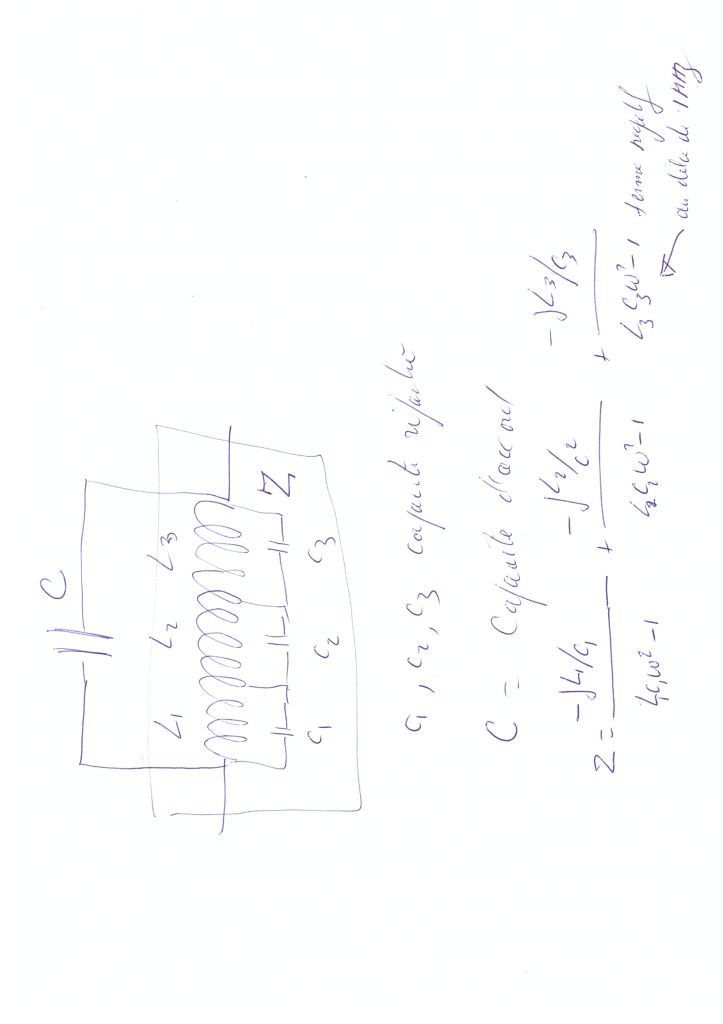 C
L1 L2 L3
Z
c1 c2 c3
c1, c2, c3 capacité répartie
C = Capacité d'accord
Z = -jL1/c1 / L1c1ω²-1 + -jL2/c2 / L2c2ω²-1 + -jL3/c3 / L3c3ω²-1
terme négatif
au delà de 1 MHz